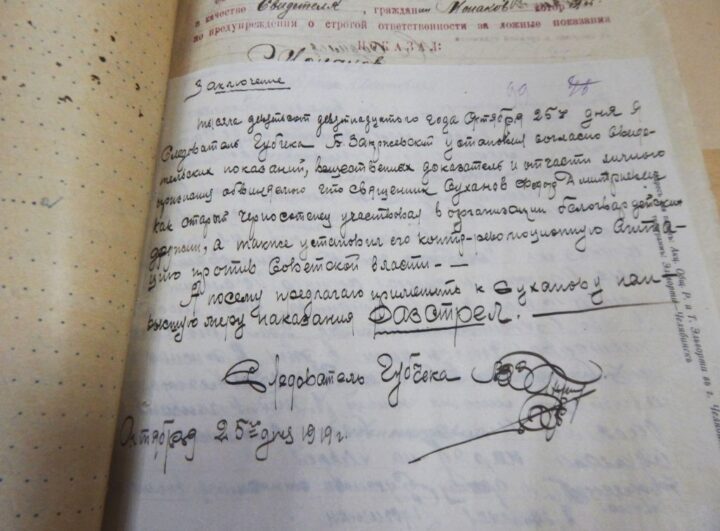 в качестве Свидетеля, гражданин
по предупреждения о строгой ответственности за ложные показания
ПОКАЗАЛ:
Заключение
тысяча девятсот девятнадцатого года Октября 25го дня Я
Следователь Губчека В. Закржевский установил согласно свиде-
тельских показаний, вещественных доказатель и отчасти личного
признания обвиняемого что священник Суханов Федор Дмитриевич
как старый черносотенец участвовал в организации белогвардейской
дружины, а также установил его контр-революционную агита-
цию против Советской власти. —
А посему предлагаю применить к Суханову наи-
высшую меру наказания Расстрел.
Следователь Губчека
Октября 25го дня 1919 г.
Акц. Общ. Р. и Т. Эльворти въ г.
Эльворти-Челябинскъ